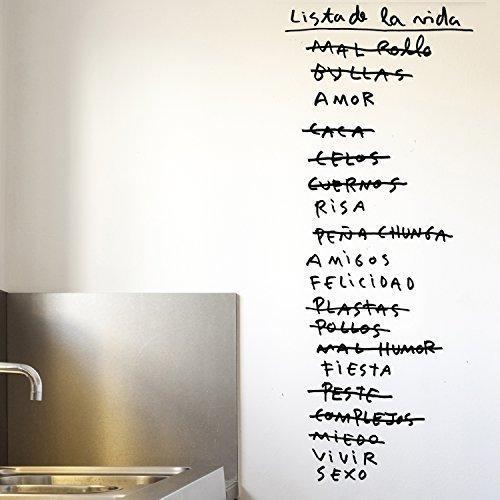 Lista de la vida
MAL Rollo
BULLAS
AMOR
CACA
CELOS
CUERNOS
RiSA
PEÑA CHUNGA
AMiGOS
FELICIDAD
PLASTAS
POLLOS
MAL HUMOR
FiESTA
PESTE
COMPLEJOS
MiEDO
ViViR
SEXO